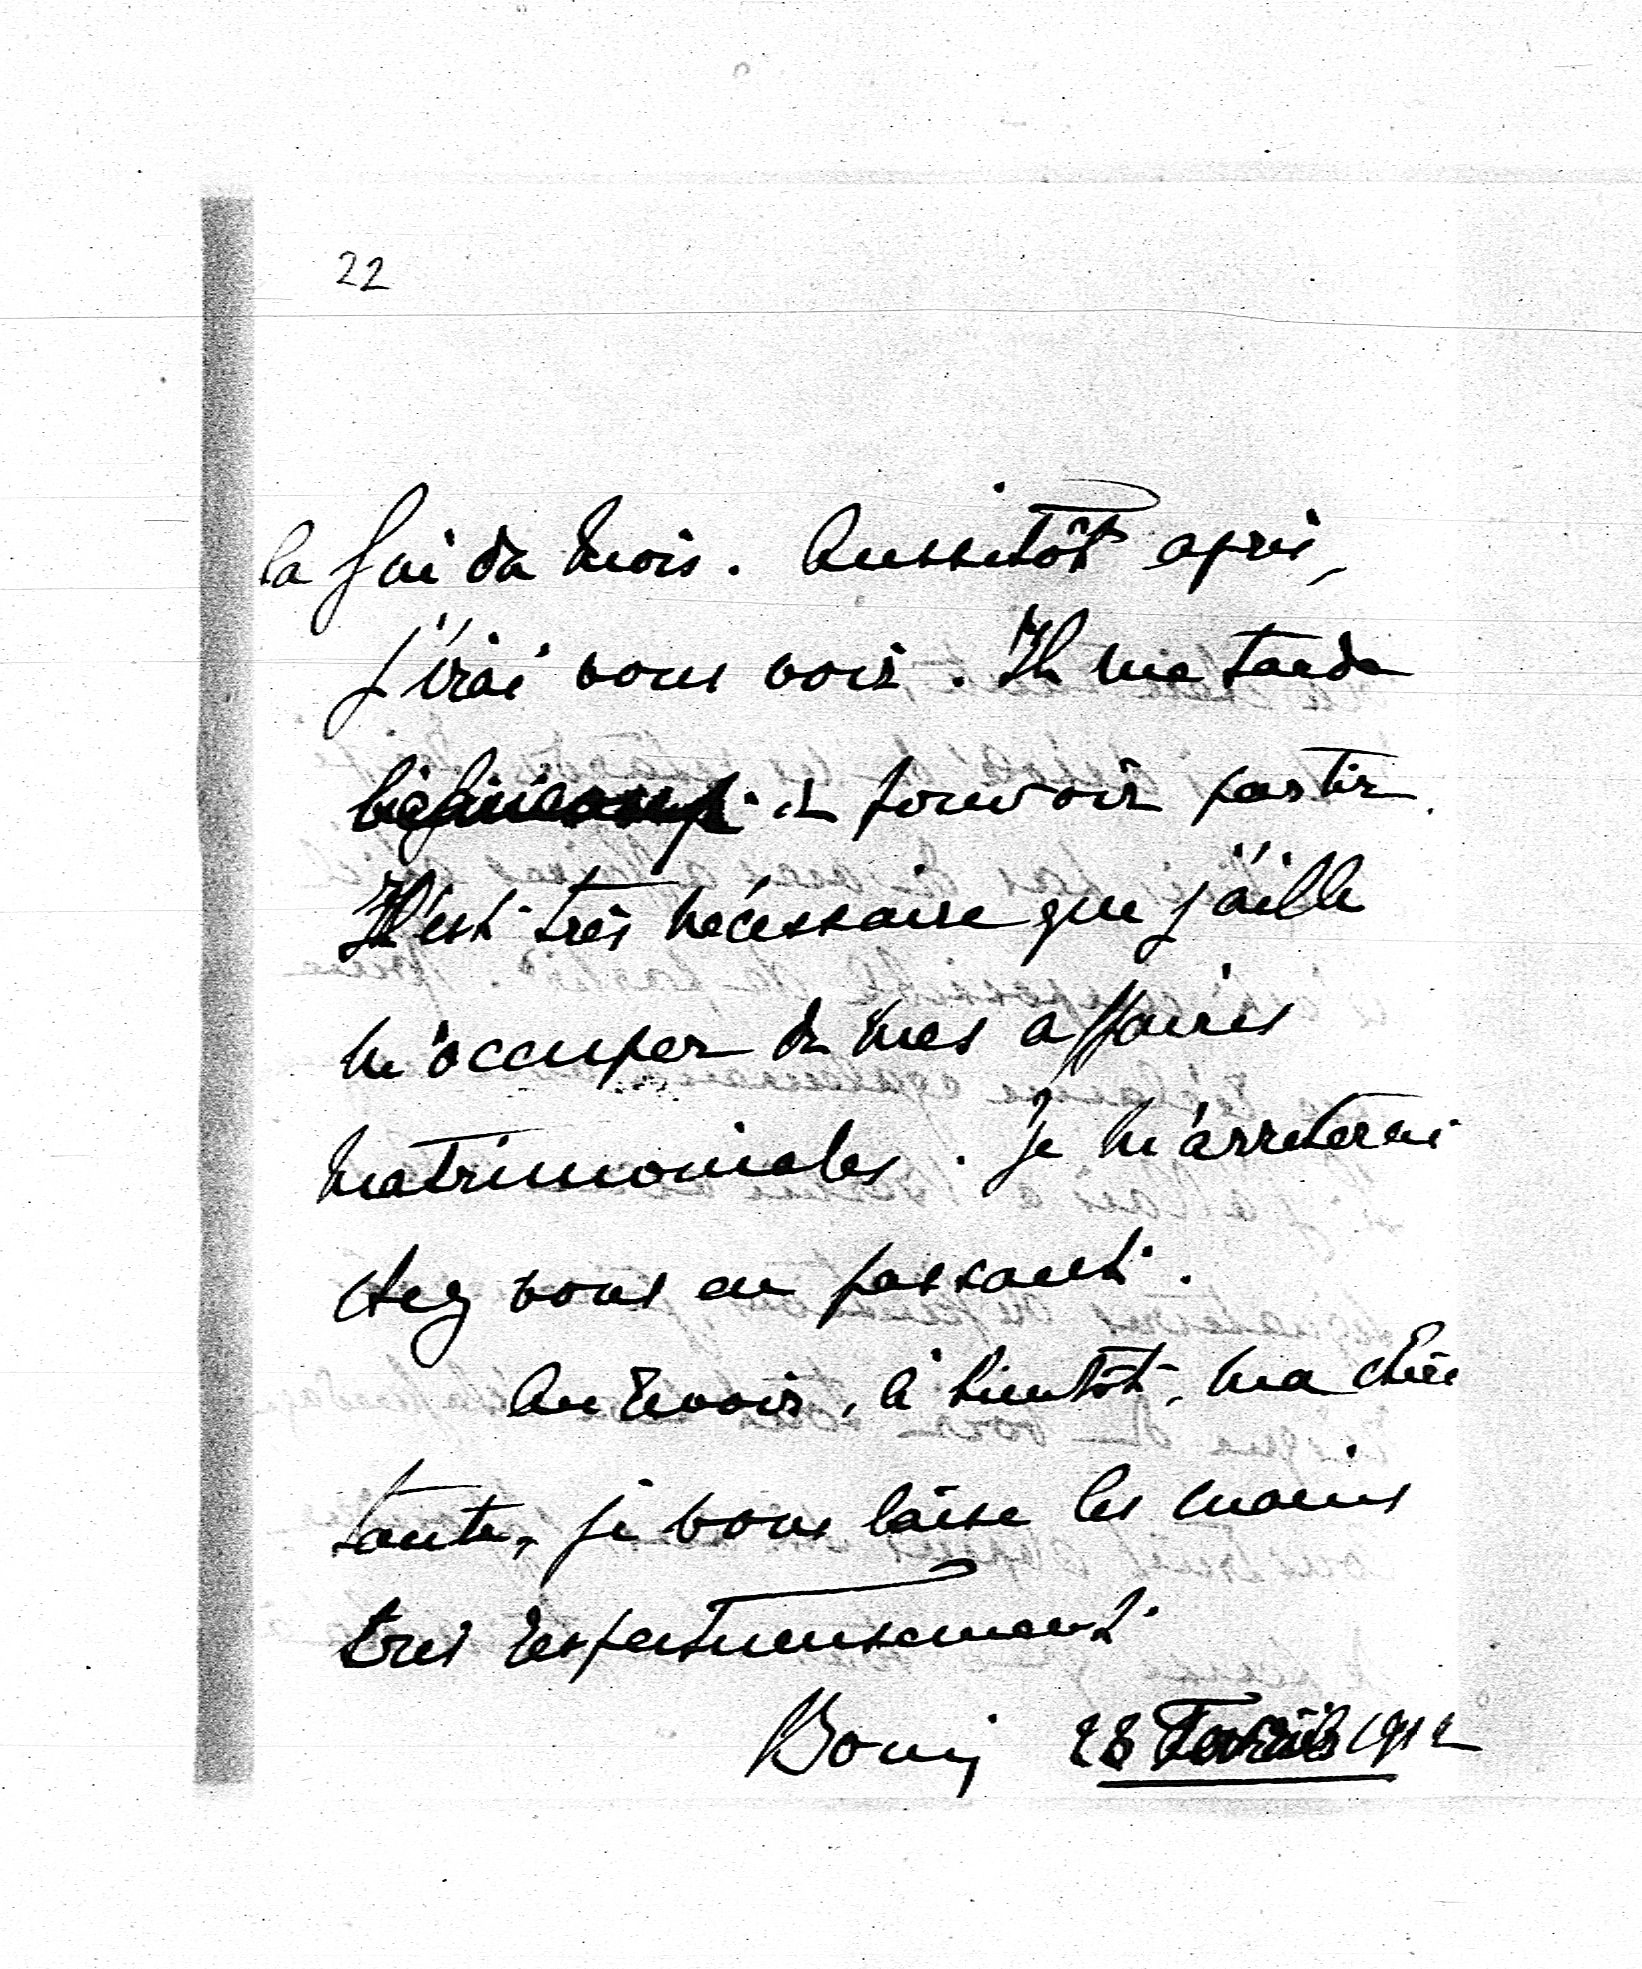 22
la fin du mois. Aussitôt après,
j'irai vous voir. Il me tarde
de pouvoir partir.
Il est très nécessaire que j'aille
m'occuper de mes affaires
matrimoniales. Je m'arreterai
chez vous en passant.
Au revoir, à bientôt, ma chère
tante, je vous baise les mains
très respectueusement
28 1912